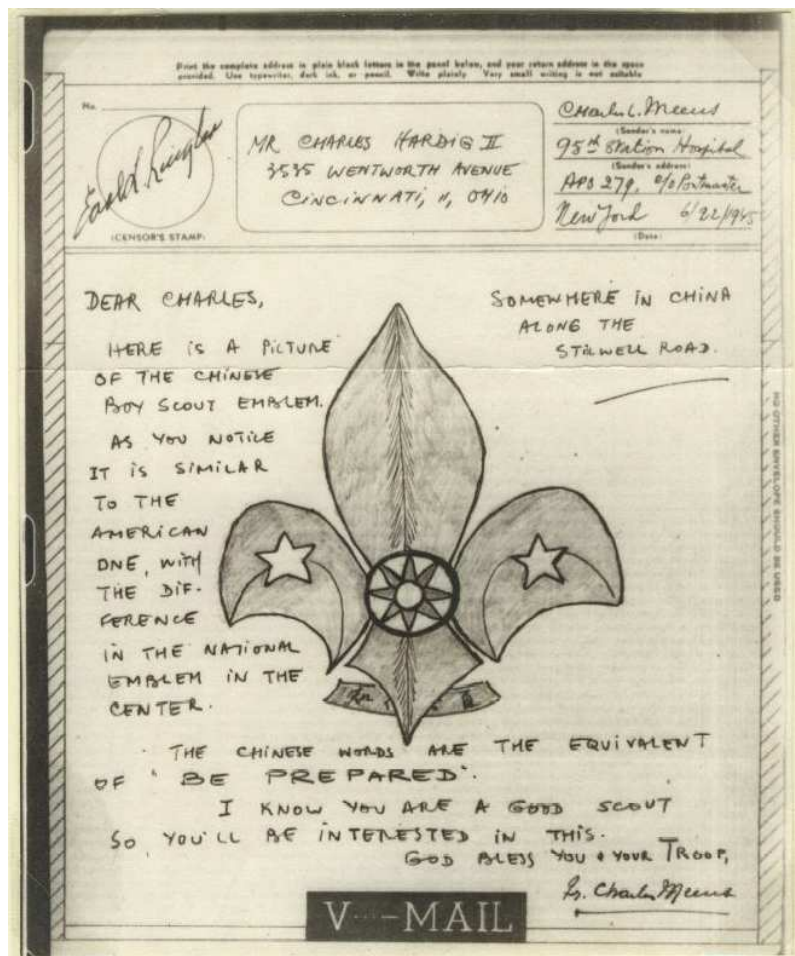 Print the complete address in plain black letters in the panel below, and your return address in the space
provided. Use typewriter, dark ink, or pencil. Write plainly Very small writing is not suitable
No.
(CENSOR'S STAMP)
MR CHARLES HARDIG II
3535 WENTWORTH AVENUE
CINCINNATI, 11, OHIO
Charles L. Meeus
(Sender's name)
95th Station Hospital
(Sender's address)
APO 279, c/o Postmaster
New York 6/22/1945
(Date)
DEAR CHARLES,
SOMEWHERE IN CHINA
ALONG THE
STILWELL ROAD.
HERE IS A PICTURE
OF THE CHINESE
BOY SCOUT EMBLEM.
AS YOU NOTICE
IT IS SIMILAR
TO THE
AMERICAN
ONE, WITH
THE DIF-
FERENCE
IN THE NATIONAL
EMBLEM IN THE
CENTER.
THE CHINESE WORDS ARE THE EQUIVALENT
OF "BE PREPARED".
I KNOW YOU ARE A GOOD SCOUT
SO YOU'LL BE INTERESTED IN THIS.
GOD BLESS YOU & YOUR TROOP,
Fr. Charles Meeus
V···-MAIL
NO OTHER ENVELOPE SHOULD BE USED